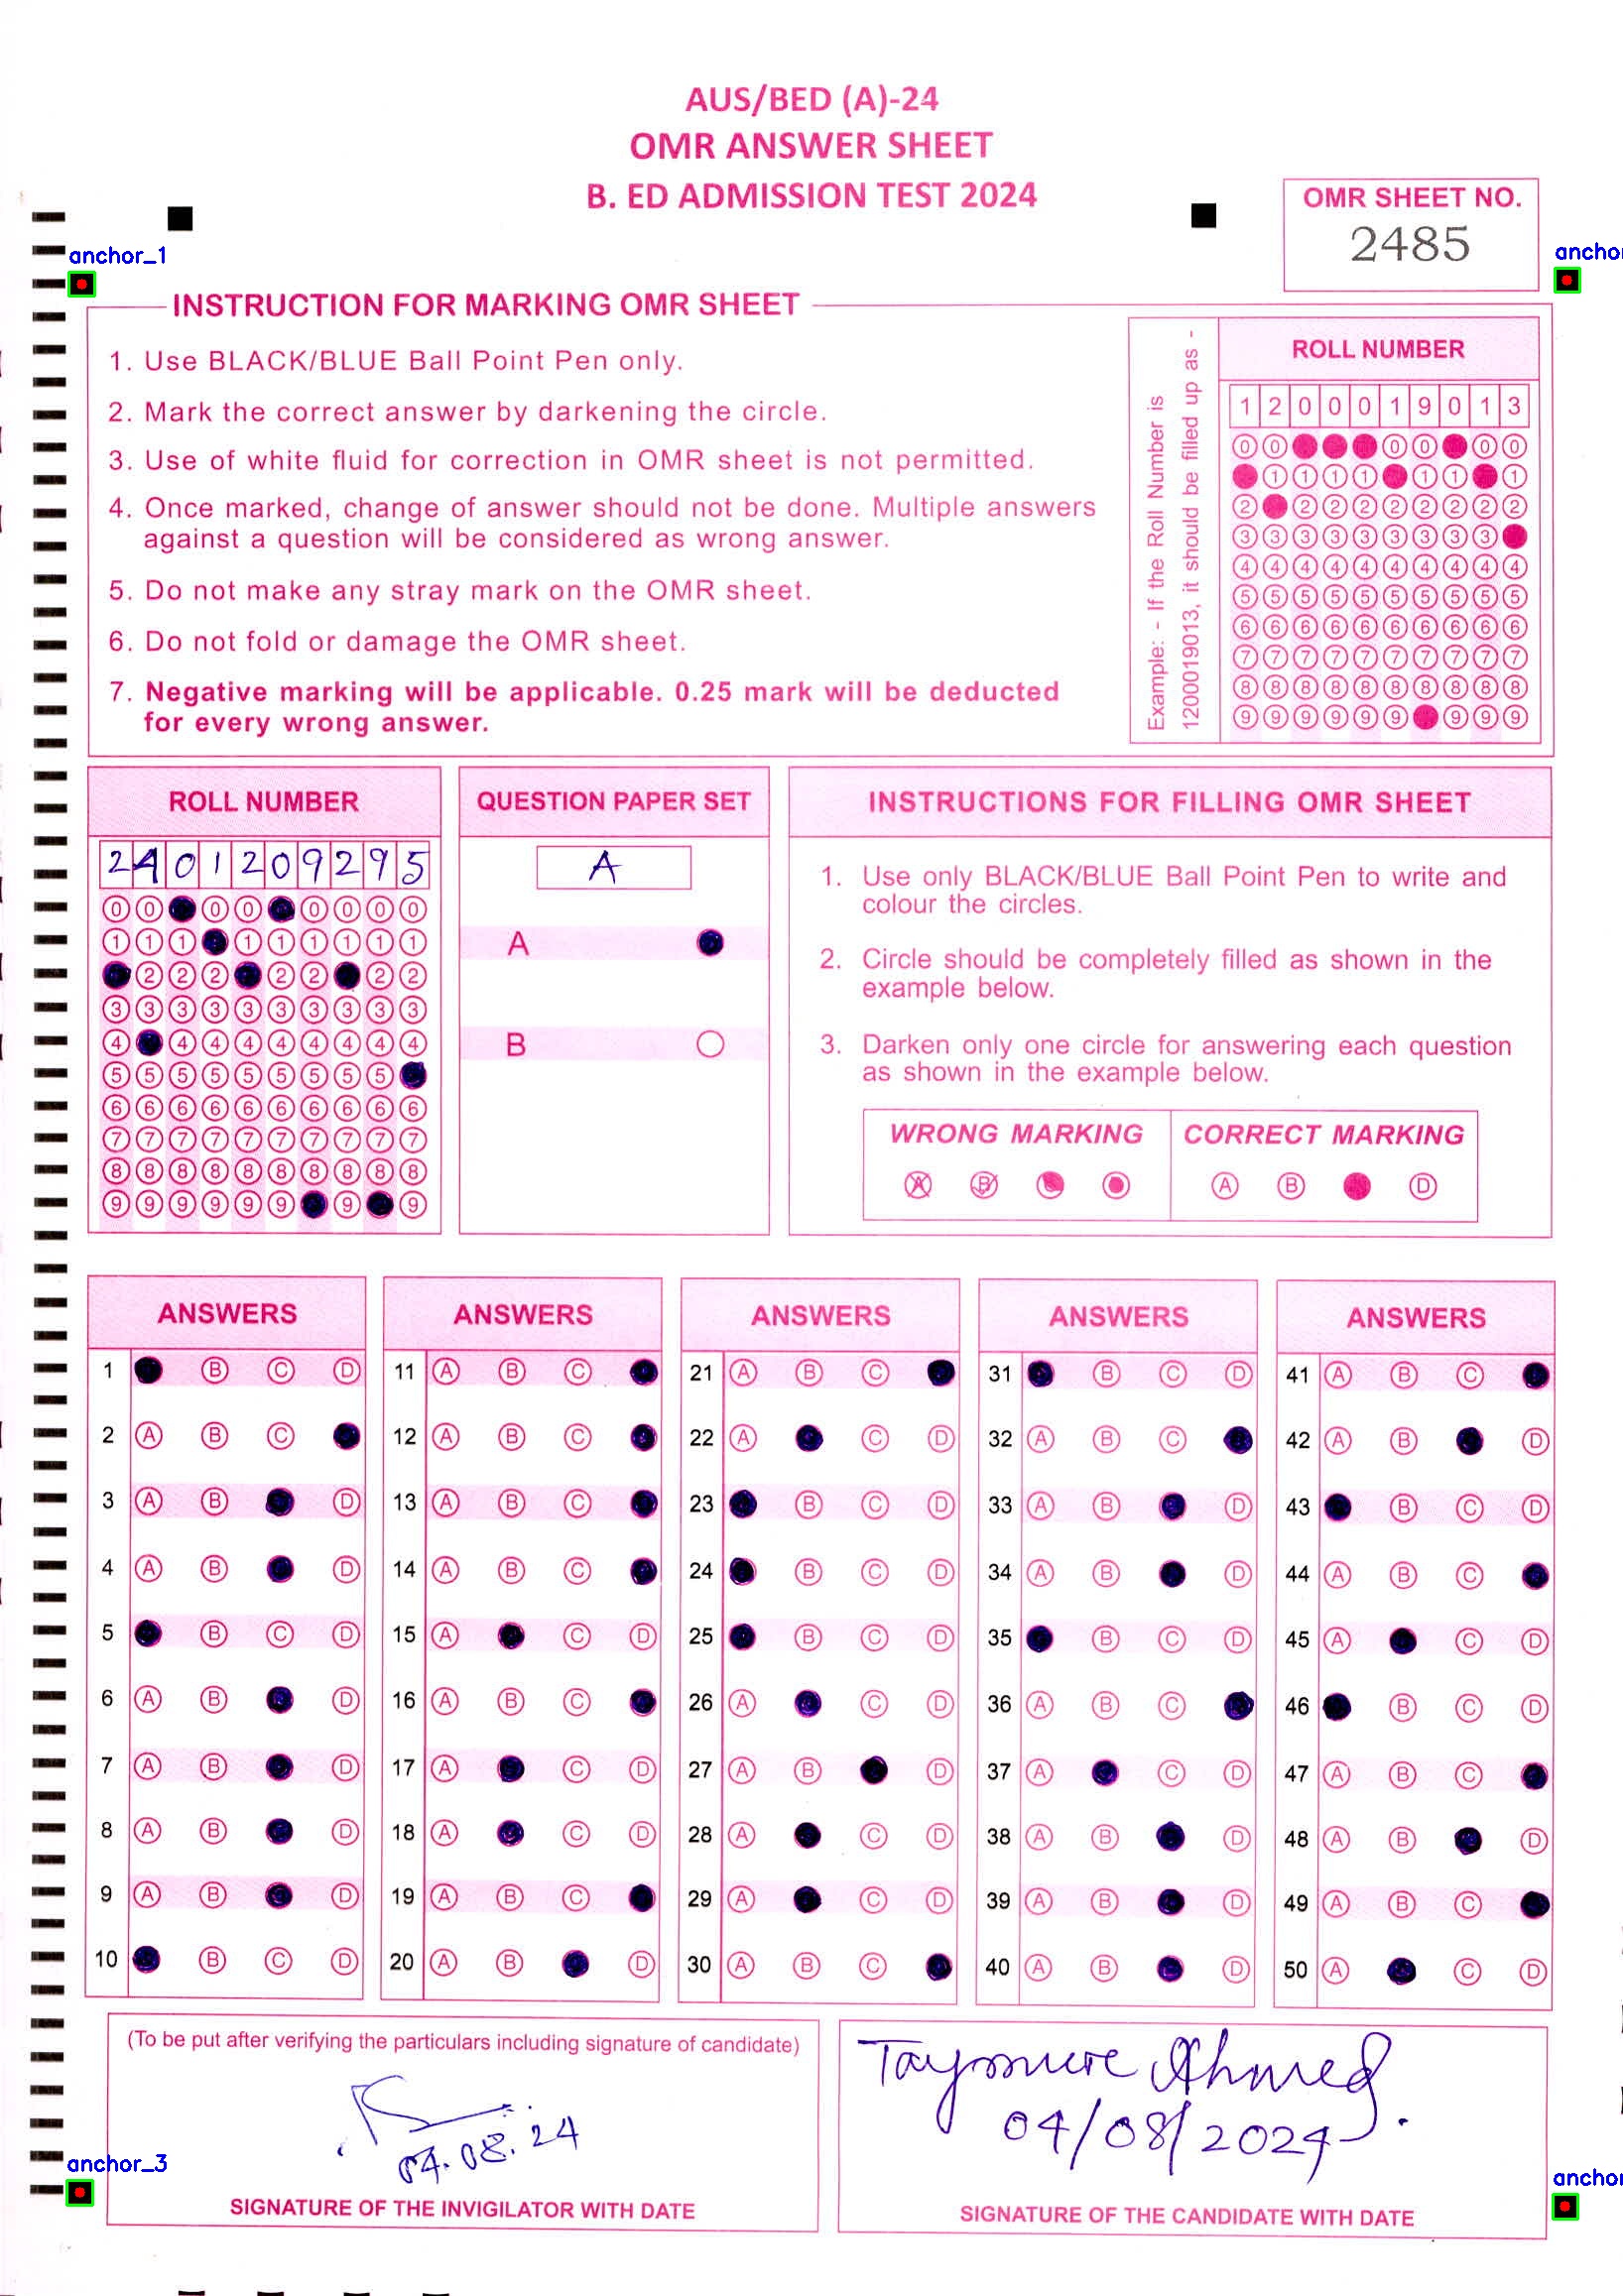 AUS/BED (A)-24
OMR ANSWER SHEET
B. ED ADMISSION TEST 2024
OMR SHEET NO.
2485
anchor_1
ancho
INSTRUCTION FOR MARKING OMR SHEET
1. Use BLACK/BLUE Ball Point Pen only.
2. Mark the correct answer by darkening the circle.
3. Use of white fluid for correction in OMR sheet is not permitted.
4. Once marked, change of answer should not be done. Multiple answers
against a question will be considered as wrong answer.
5. Do not make any stray mark on the OMR sheet.
6. Do not fold or damage the OMR sheet.
7. Negative marking will be applicable. 0.25 mark will be deducted
for every wrong answer.
Example: - If the Roll Number is
1200019013, it should be filled up as -
ROLL NUMBER
1 2 0 0 0 1 9 0 1 3
0 0 0 0 0 0
1 1 1 1 1 1 1
2 2 2 2 2 2 2 2 2
3 3 3 3 3 3 3 3 3
4 4 4 4 4 4 4 4 4 4
5 5 5 5 5 5 5 5 5 5
6 6 6 6 6 6 6 6 6 6
7 7 7 7 7 7 7 7 7 7
8 8 8 8 8 8 8 8 8 8
9 9 9 9 9 9 9 9 9
ROLL NUMBER
2 4 0 1 2 0 9 2 9 5
0 0 0 0 0 0 0 0
1 1 1 1 1 1 1 1 1
2 2 2 2 2 2 2
3 3 3 3 3 3 3 3 3 3
4 4 4 4 4 4 4 4 4
5 5 5 5 5 5 5 5 5
6 6 6 6 6 6 6 6 6 6
7 7 7 7 7 7 7 7 7 7
8 8 8 8 8 8 8 8 8 8
9 9 9 9 9 9 9 9
QUESTION PAPER SET
A
A
B
INSTRUCTIONS FOR FILLING OMR SHEET
1. Use only BLACK/BLUE Ball Point Pen to write and
colour the circles.
2. Circle should be completely filled as shown in the
example below.
3. Darken only one circle for answering each question
as shown in the example below.
WRONG MARKING
A B
CORRECT MARKING
A B D
ANSWERS
1 B C D
2 A B C
3 A B D
4 A B D
5 B C D
6 A B D
7 A B D
8 A B D
9 A B D
10 B C D
ANSWERS
11 A B C
12 A B C
13 A B C
14 A B C
15 A C D
16 A B C
17 A C D
18 A C D
19 A B C
20 A B D
ANSWERS
21 A B C
22 A C D
23 B C D
24 B C D
25 B C D
26 A C D
27 A B D
28 A C D
29 A C D
30 A B C
ANSWERS
31 B C D
32 A B C
33 A B D
34 A B D
35 B C D
36 A B C
37 A C D
38 A B D
39 A B D
40 A B D
ANSWERS
41 A B C
42 A B D
43 B C D
44 A B C
45 A C D
46 B C D
47 A B C
48 A B D
49 A B C
50 A C D
(To be put after verifying the particulars including signature of candidate)
04.08.24
SIGNATURE OF THE INVIGILATOR WITH DATE
Taymure Ahmed
04/08/2024
SIGNATURE OF THE CANDIDATE WITH DATE
anchor_3
ancho